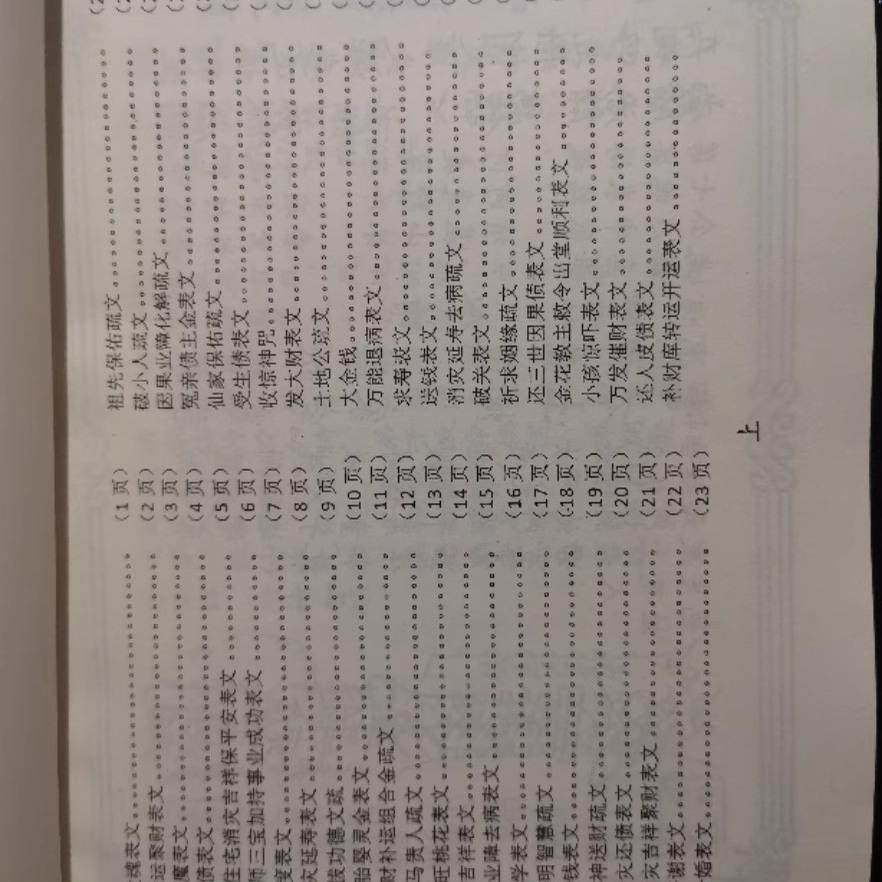 魂表文 (1页)
运聚财表文 (2页)
魔表文 (3页)
债表文 (4页)
住宅消灾吉祥保平安表文 (5页)
师三宝加持事业成功表文 (6页)
度表文 (7页)
灾延寿表文 (8页)
拔功德文疏 (9页)
胎婴灵金表文 (10页)
财补运组合金疏文 (11页)
马贵人疏文 (12页)
旺桃花表文 (13页)
吉祥表文 (14页)
业障去病表文 (15页)
学表文 (16页)
明智慧疏文 (17页)
钱表文 (18页)
神送财疏文 (19页)
灾还债表文 (20页)
灾吉祥聚财表文 (21页)
谢表文 (22页)
婚表文 (23页)
祖先保佑疏文
破小人疏文
因果业障化解疏文
冤亲债主金表文
仙家保佑疏文
受生债表文
收惊神咒
发大财表文
土地公疏文
大金钱
万能退病表文
求寿表文
送钱表文
消灾延寿去病疏文
破关表文
祈求姻缘疏文
还三世因果债表文
金花教主敕令出堂顺利表文
小孩惊吓表文
万发催财表文
还人皮债表文
补财库转运开运表文
上